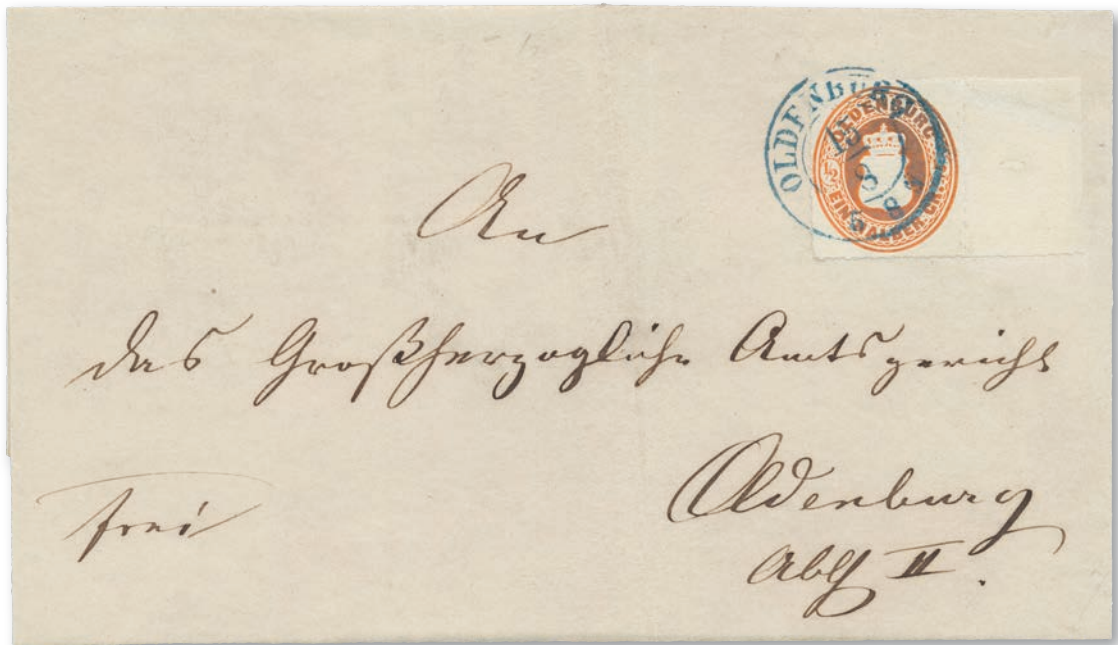 OLDENBURG
15
8
OLDENBURG
EIN HALBER GR.
An
das Großherzogliche Amtsgericht
Oldenburg
Abth II.
frei